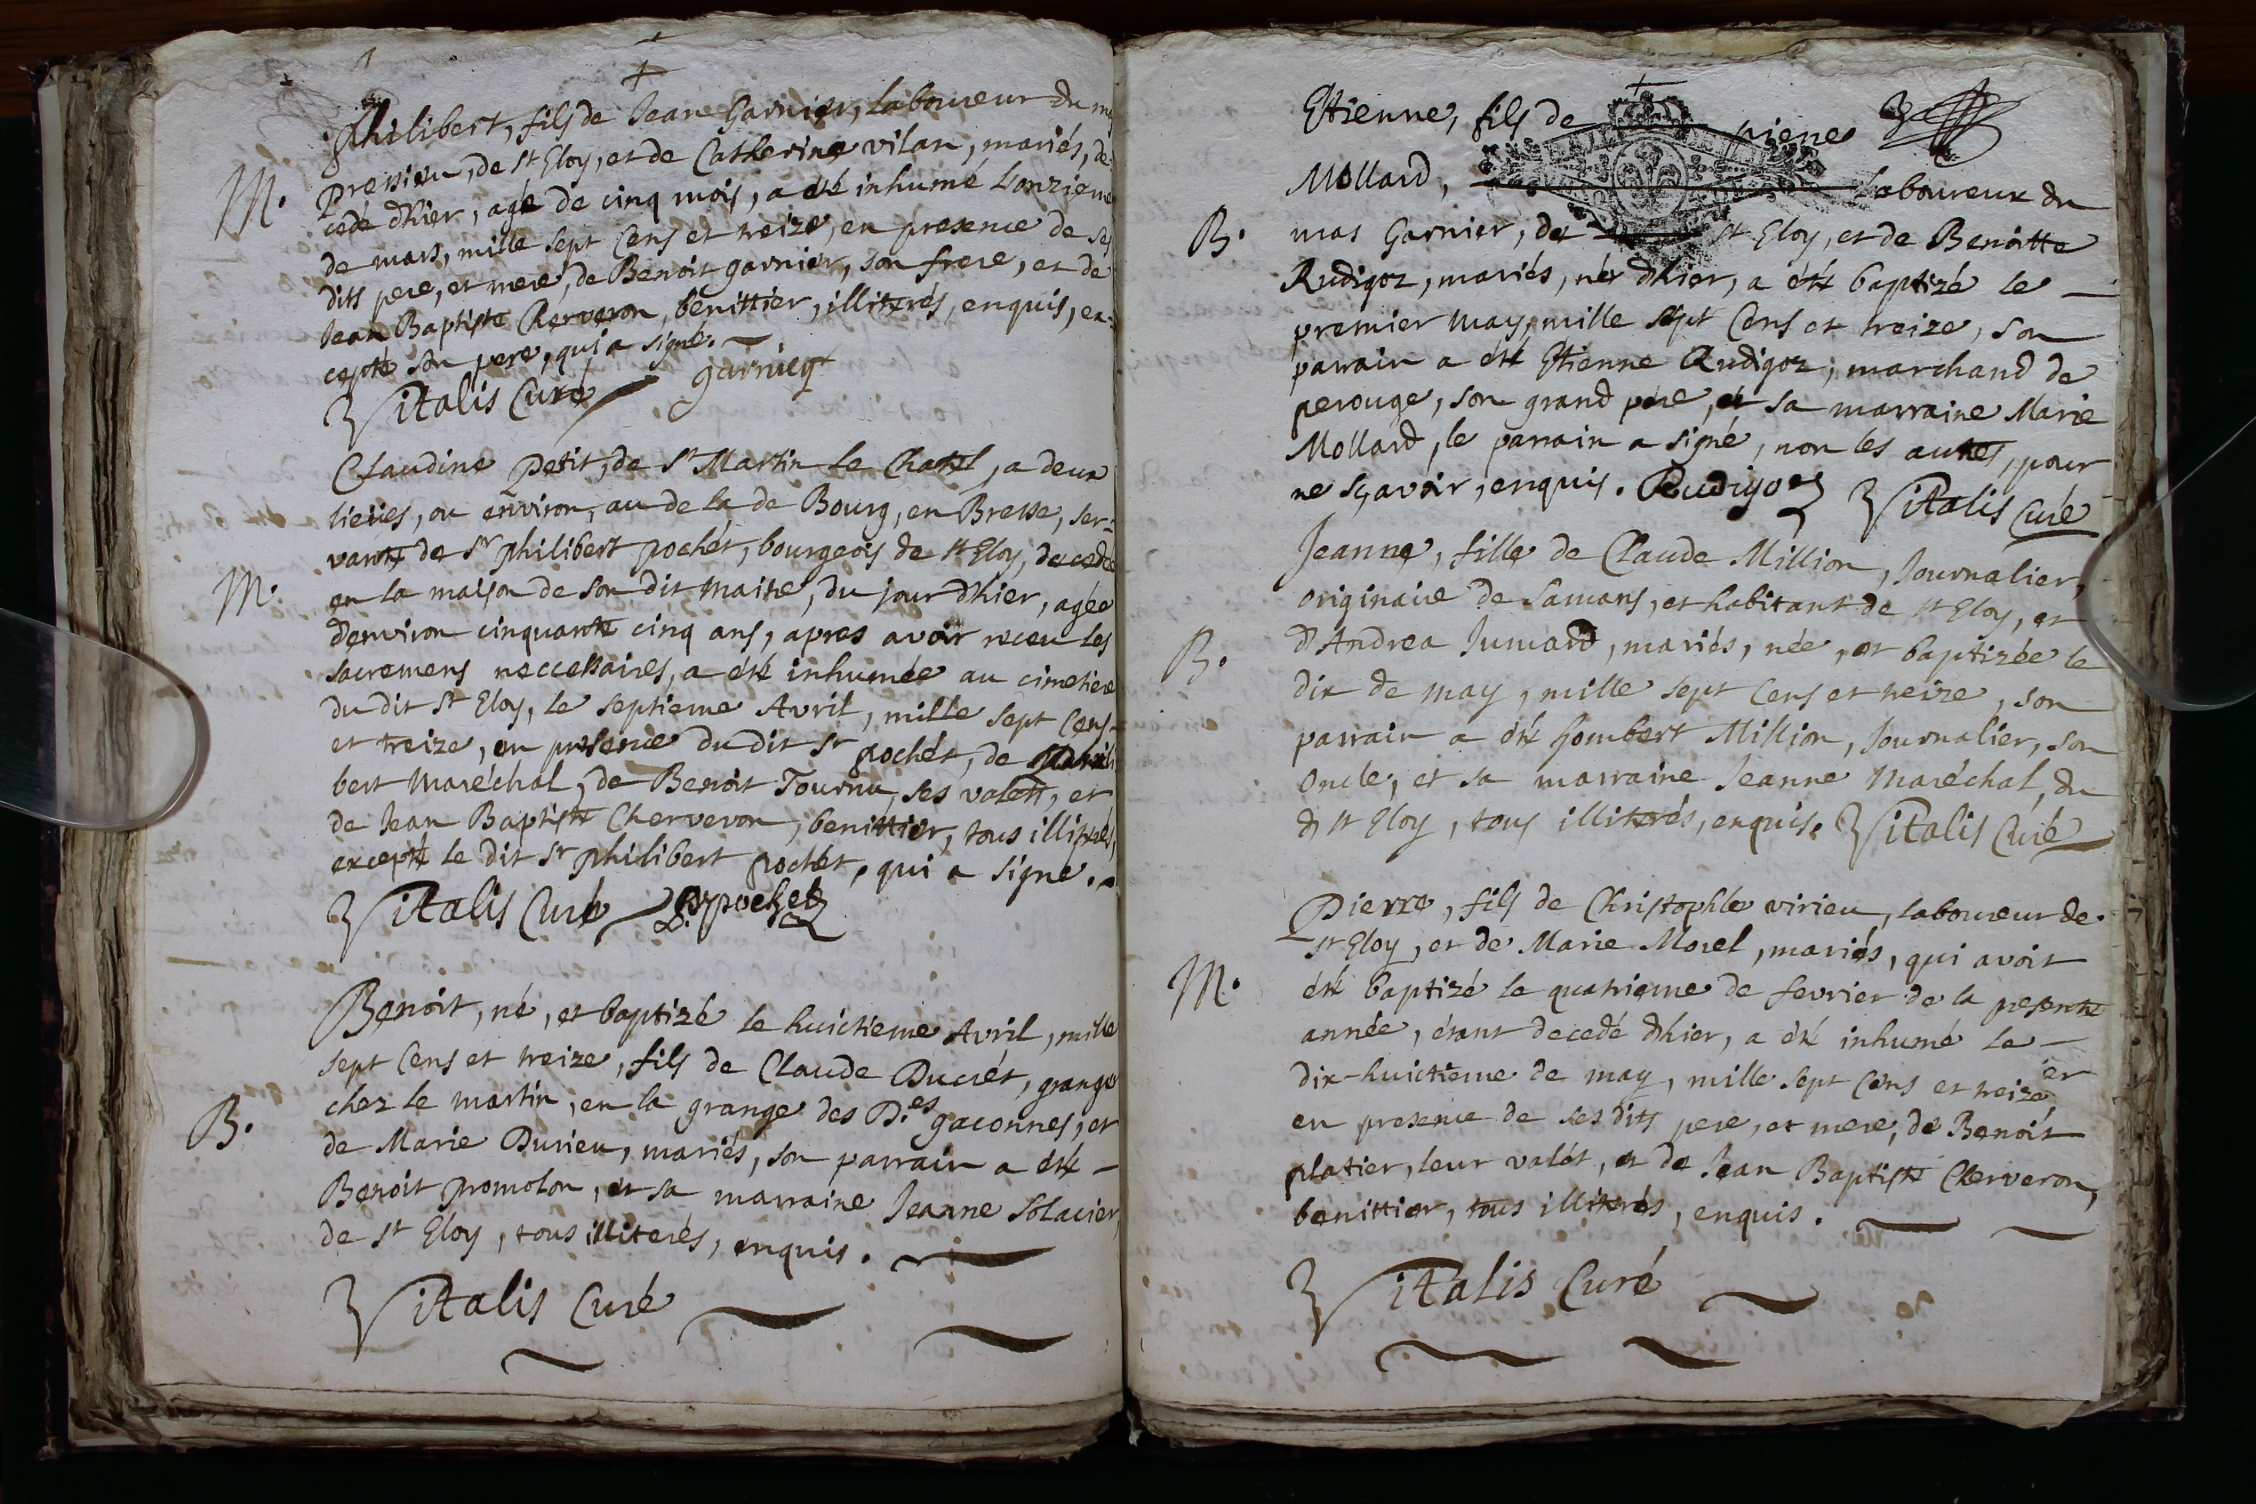 M.
Philibert, fils de Jean Garnier, laboureur du mas
Pressieu, de St Eloy, et de Catherine vilan, mariés, de=
cedé dhier, agé de cinq mois, a été inhumé Lonzieme
de mars, mille sept Cens et treize, en presence de ses
dits pere, et mere, de Benoit garnier, son frere, et de
Jean Baptiste Cherveron, benittier, illiterés, enquis, ex=
cepté son pere, qui a signé.
Vitalis Curé garnier
M.
Claudine Petit, de St Martin le Chatel, a deux
lieües, ou environ, au de la de Bourg, en Bresse, ser=
vante de Sr philibert pochét, bourgeois de St Eloy, decedée
en la maison de son dit maitre, du jour dhier, agée
denviron cinquante cinq ans, apres avoir receu les
sacremens neccessaires, a été inhumée au cimetiere
du dit St Eloy, le septieme Avril, mille sept Cens
et treize, en presence du dit Sr pochét, de
bert Maréchal, de Benoit Tournu, ses valets, et
de Jean Baptiste Cherveron, benittier, tous illiterés,
excepté le dit Sr philibert pochét, qui a signé.
Vitalis Curé pochet
B.
Benoit, né, et baptizé le huictieme Avril, mille
sept Cens et treize, fils de Claude Ducrét, granger
chez le martin, en la grange des D.es gaconnes, et
de Marie Durieu, mariés, son parrain a été
Benoit promolon, et sa marraine Jeanne Solavier,
de St Eloy, tous illiterés, enquis.
Vitalis Curé
B.
Etienne, fils de pierre
Mollard, laboureur du
mas Garnier, de St Eloy, et de Benoitte
Rudigoz, mariés, né dhier, a été baptizé le
premier may, mille sept Cens et treize, son
parrain a été Etienne Rudigoz, marchand de
perouge, son grand pere, et sa marraine Marie
Mollard, le parrain a signé, non les autres, pour
ne sçavoir, enquis. Rudigoz Vitalis Curé
B.
Jeanne, fille de Claude Million, Journalier,
originaire de Samans, et habitant de St Eloy, et
d'Andrea Jumard, mariés, née, et baptizée le
dix de may, mille sept Cens et treize, son
parrain a été Humbert Million, Journalier, son
Oncle, et sa marraine Jeanne Maréchal, du
d. St Eloy, tous illiterés, enquis. Vitalis Curé
M.
Pierre, fils de Christophle virieu, laboureur de
St Eloy, et de Marie Morel, mariés, qui avoit
été baptizé le quatrieme de fevrier de la presente
année, étant decedé dhier, a été inhumé le
dix-huictieme de may, mille sept Cens et treize
en presence de ses dits pere, et mere, de Benoit
platier, leur valét, et de Jean Baptiste Cherveron,
benittier, tous illiterés, enquis.
Vitalis Curé